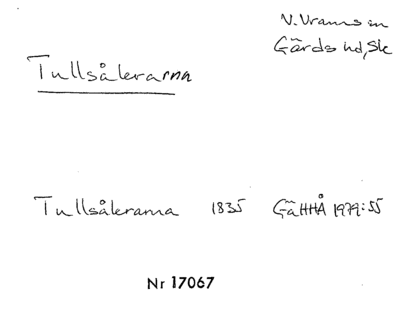 V. Vrams sn
Gärds hd, Sk
Tullsåkrarna
Tullsåkrarna 1835 GäHHÅ 1979:55
Nr 17067